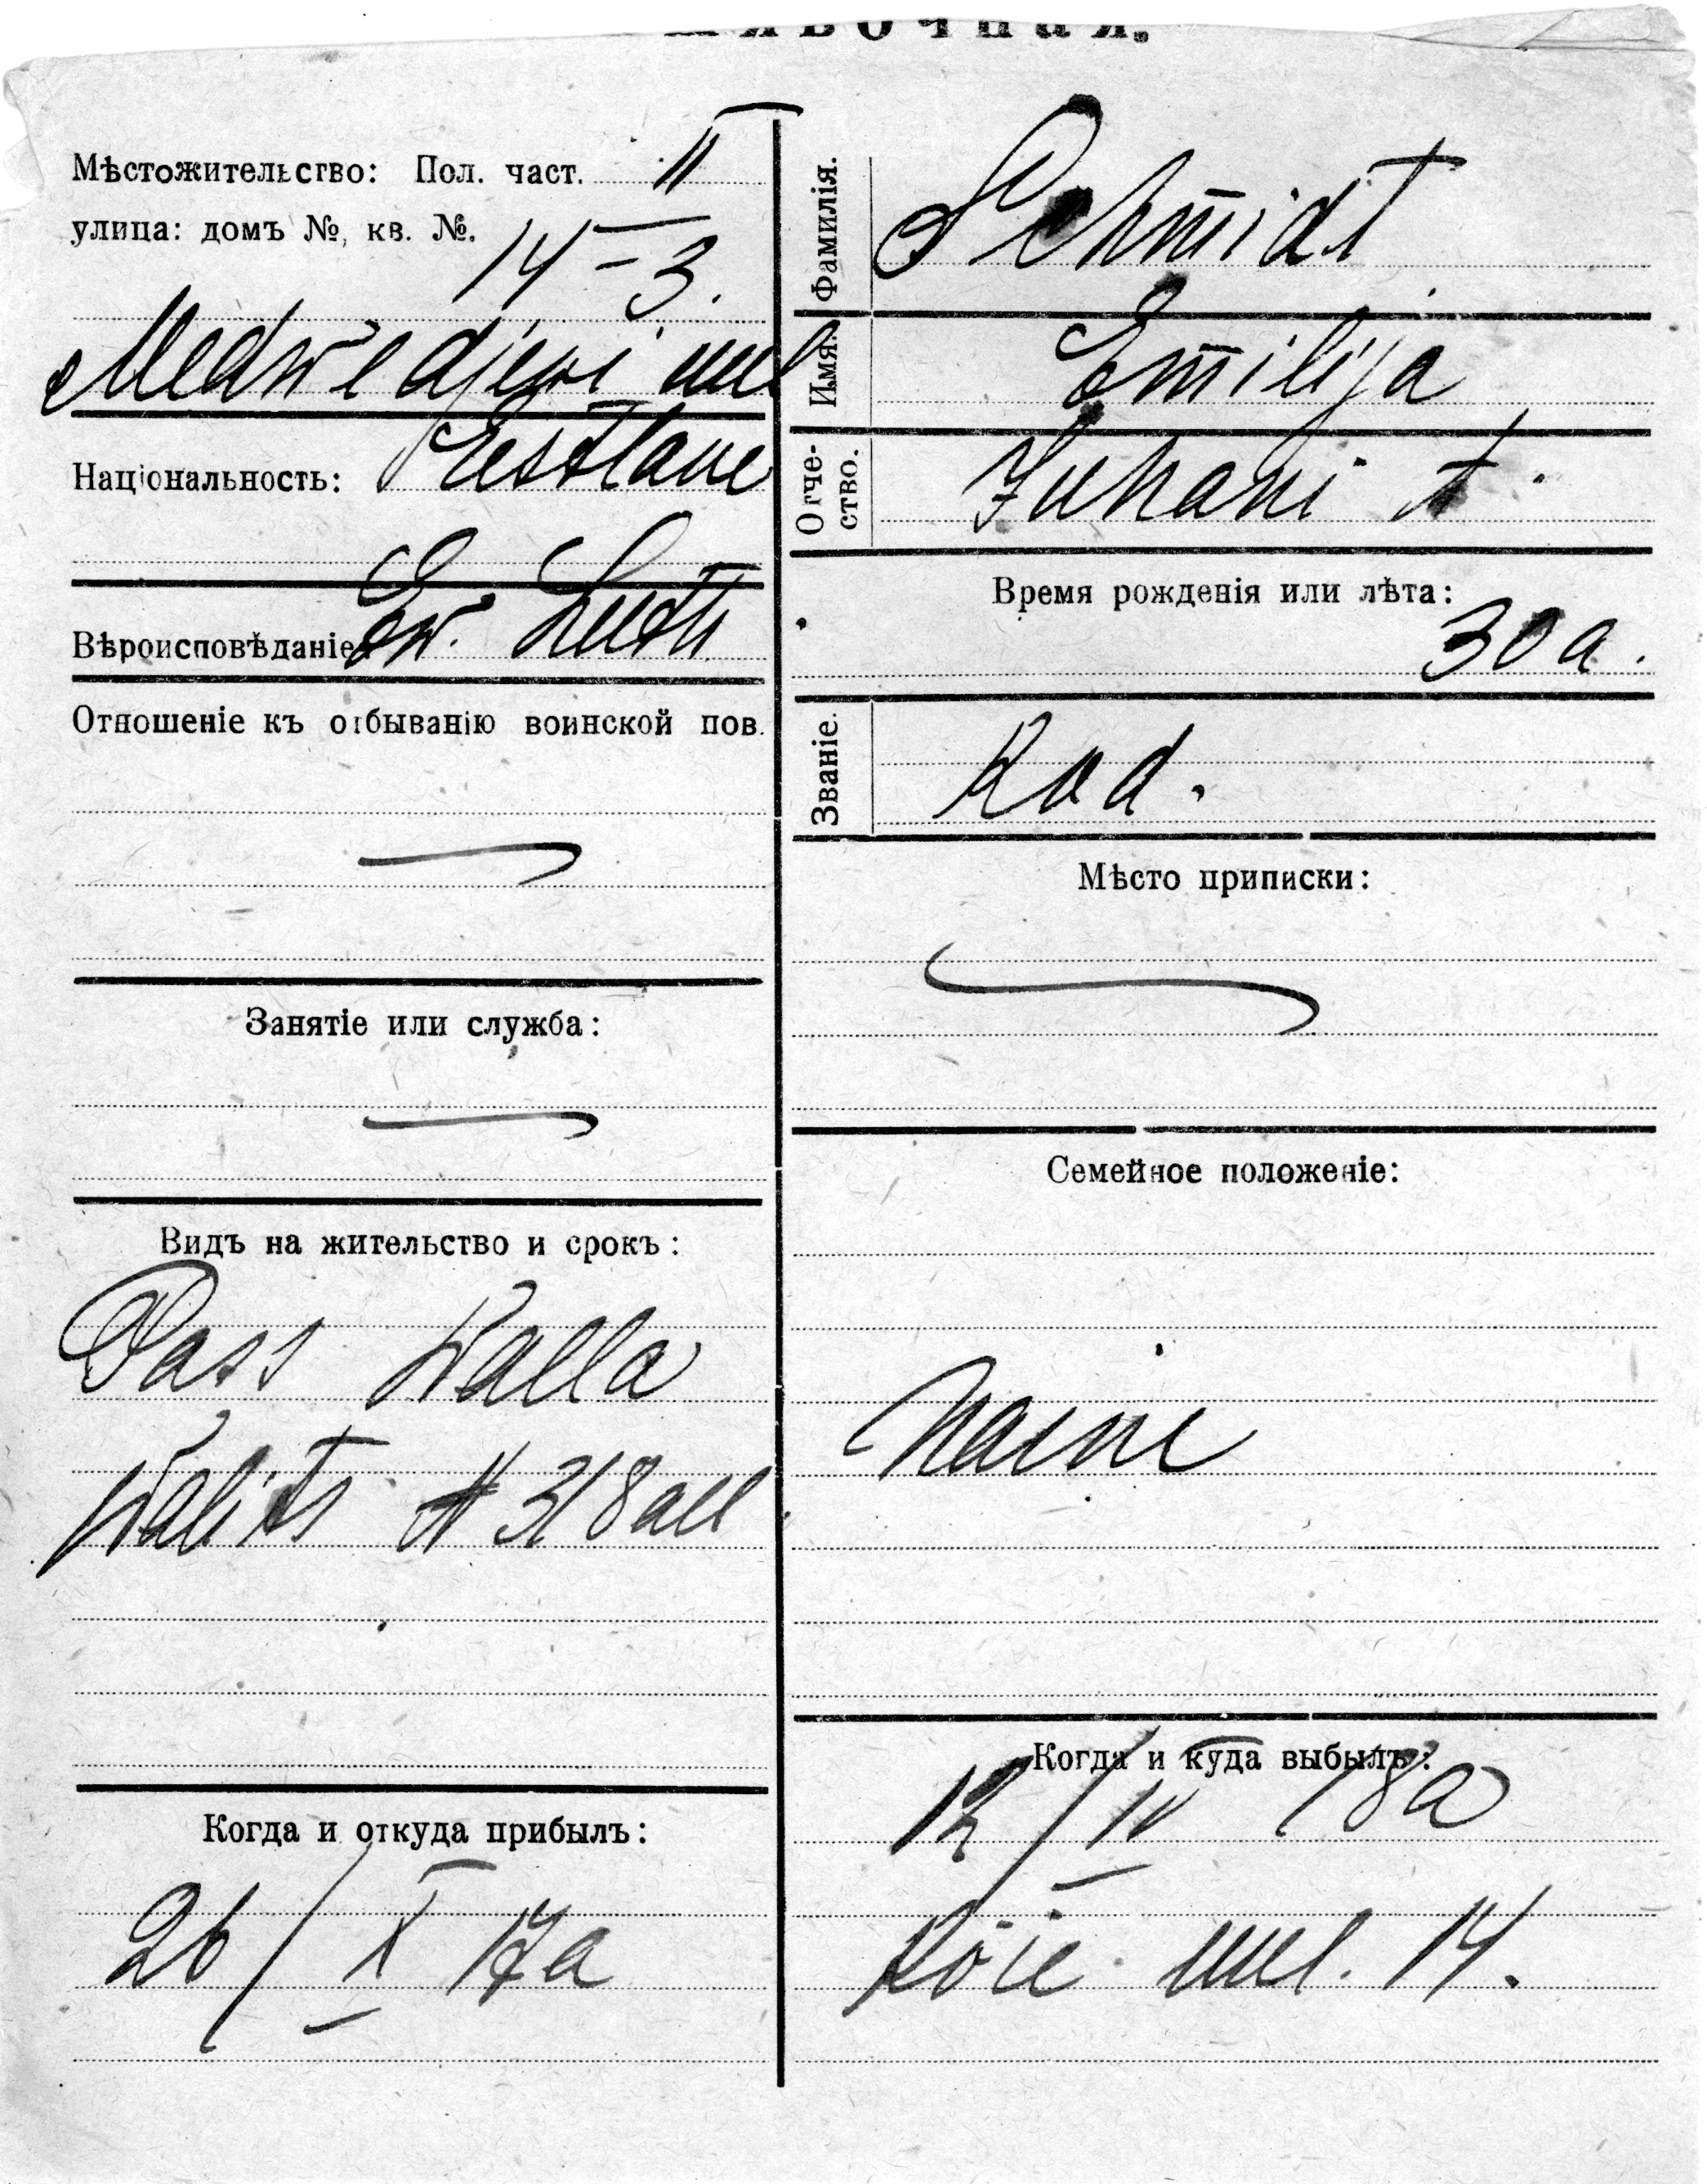 Мѣстожительство: Пол. част. II
улица: домъ №, кв. №.
14-3.
Medwedjewi uul
Національность: Eestlane
Вѣроисповѣданіе Ew. Luth.
Отношеніе къ отбыванію воинской пов.
Занятіе или служба:
Видъ на жительство и срокъ:
Pass Walla
Walits № 318 all
Когда и откуда прибылъ:
26/X 17a
Фамилія. Schmidt
Имя. Emilija
Отчество. Juhani t.
Время рожденія или лѣта:
30 a.
Званіе. Kod.
Мѣсто приписки:
Семейное положеніе:
Naine
Когда и куда выбылъ:
12/IV 18a
Köie uul. 14.